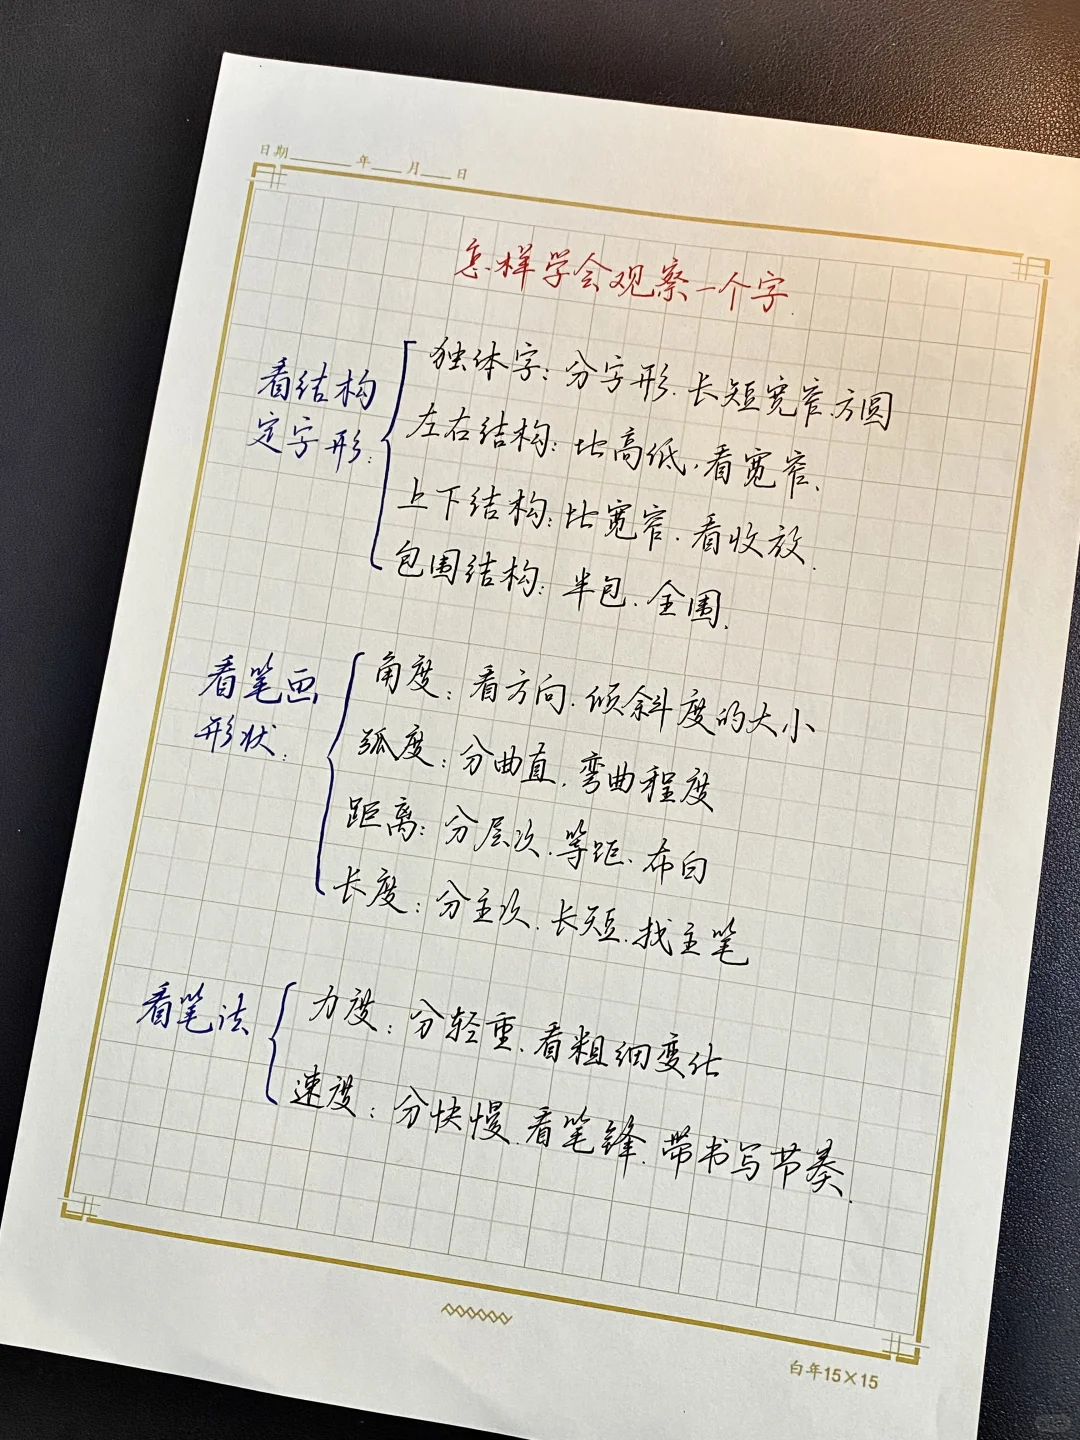 日期______年___月___日
怎样学会观察一个字.
看结构
定字形:
独体字:分字形.长短宽窄方圆
左右结构:比高低,看宽窄.
上下结构:比宽窄.看收放.
包围结构:半包.全围.
看笔画
形状:
角度:看方向.倾斜度的大小
弧度:分曲直.弯曲程度
距离:分层次.等距.布白
长度:分主次.长短.找主笔
看笔法
力度:分轻重.看粗细变化
速度:分快慢.看笔锋.带书写节奏.
白年15×15